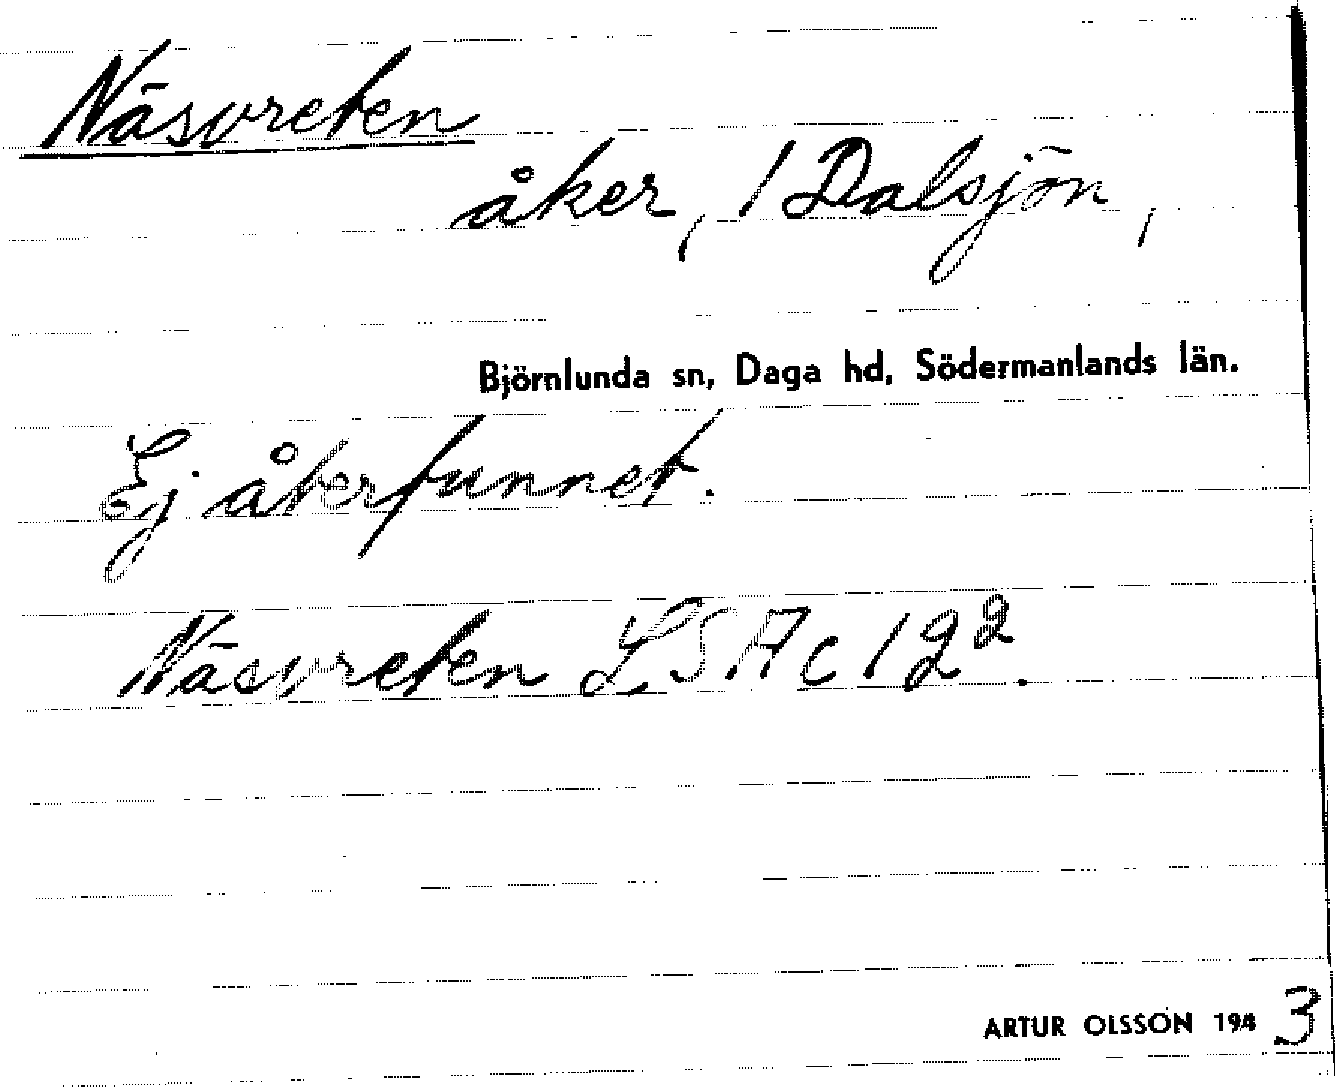 Näsvreten
åker, 1 Dalsjön,
Björnlunda sn, Daga hd, Södermanlands län.
Ej återfunnet.
Näsvreten LSA c 12².
ARTUR OLSSON 1943